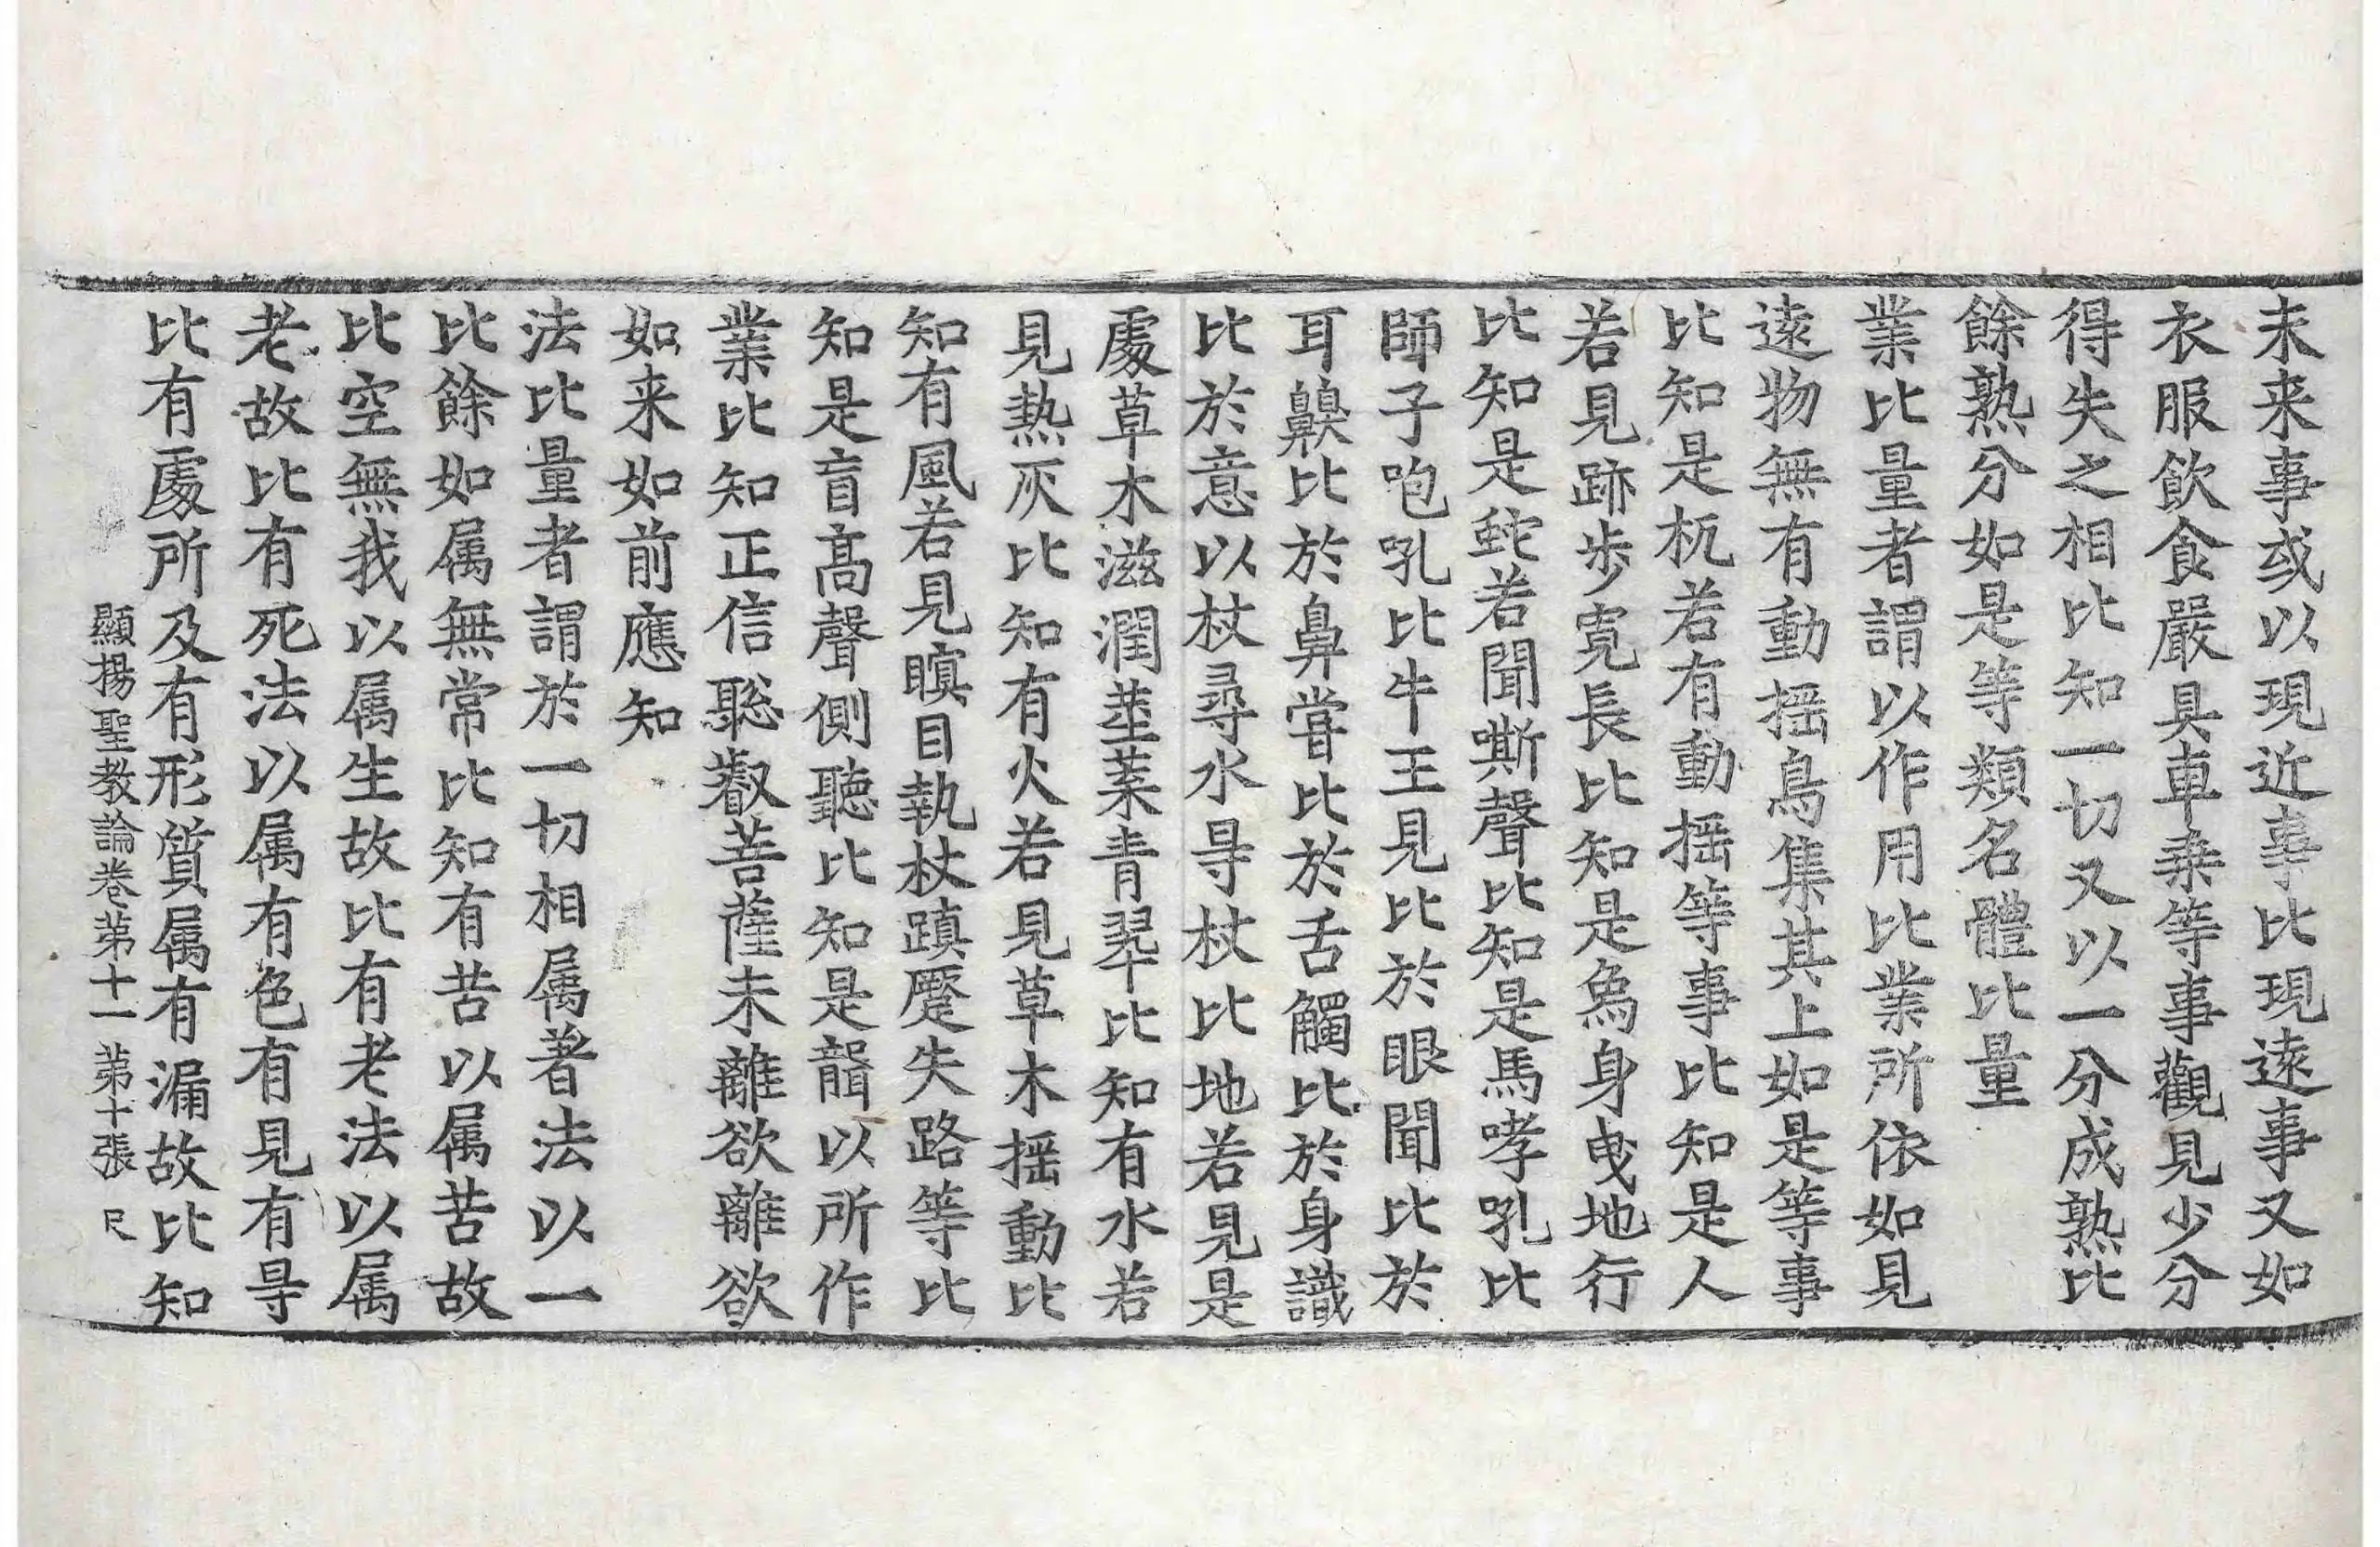 未来事或以現近事比現遠事又如
衣服飲食嚴具車乗等事觀見少分
得失之相比知一切又以一分成熟比
餘熟分如是等類名體比量
業比量者謂以作用比業所依如見
遠物無有動揺鳥集其上如是等事
比知是杌若有動揺等事比知是人
若見跡歩寛長比知是爲身曵地行
比知是虵若聞嘶聲比知是馬哮吼比
師子咆吼比牛王見比於眼聞比於
耳齅比於鼻嘗比於舌觸比於身識
比於意以杖尋水㝵杖比地若見是
處草木滋潤莖葉青翠比知有水若
見熱灰比知有火若見草木揺動比
知有風若見瞑目執杖蹎蹷失路等比
知是盲髙聲側聽比知是聾以所作
業比知正信聡叡菩薩未離欲離欲
如来如前應知
法比量者謂於一切相属著法以一
比餘如属無常比知有苦以属苦故
比空無我以属生故比有老法以属
老故比有死法以属有色有見有㝵
比有處所及有形質属有漏故比知
顯揚聖教論卷苐十一　苐十張　尺